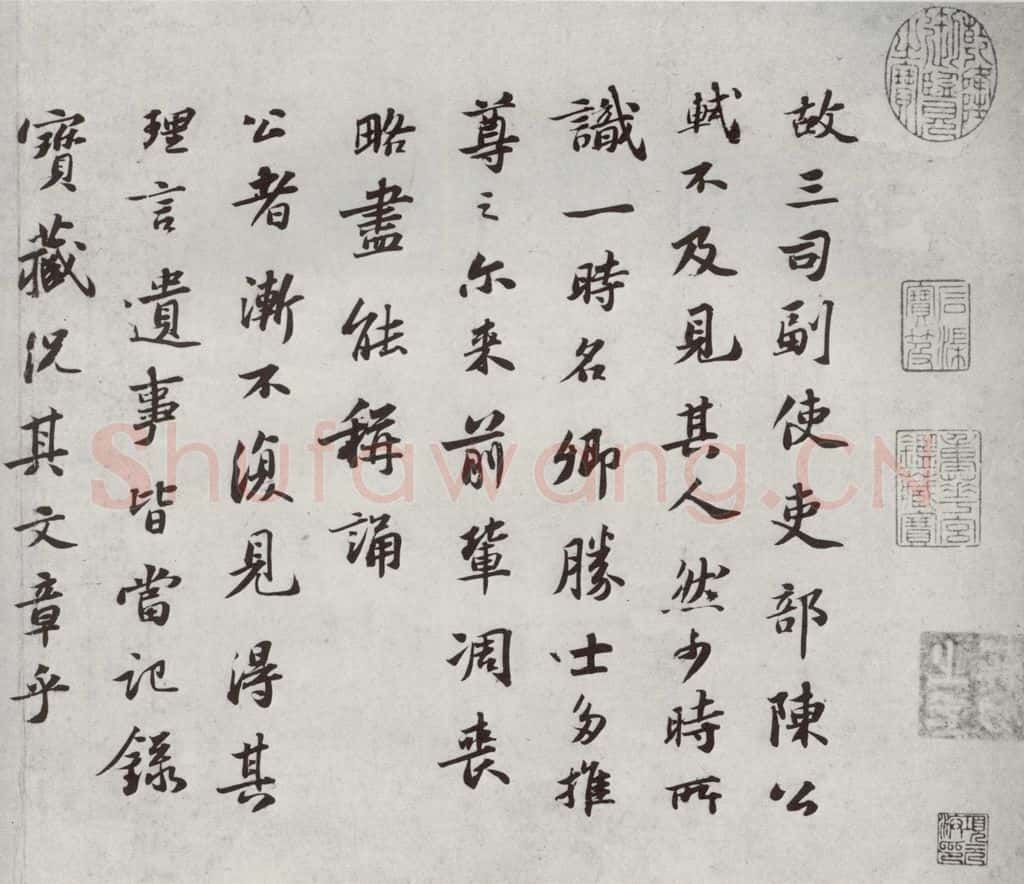 故三司副使吏部陳公
軾不及見其人然少時所
識一時名卿勝士多推
尊之尓来前輩凋喪
略盡能稱誦
公者漸不復見得其
理言遺事皆當記錄
寶藏況其文章乎
Shufawang.CN